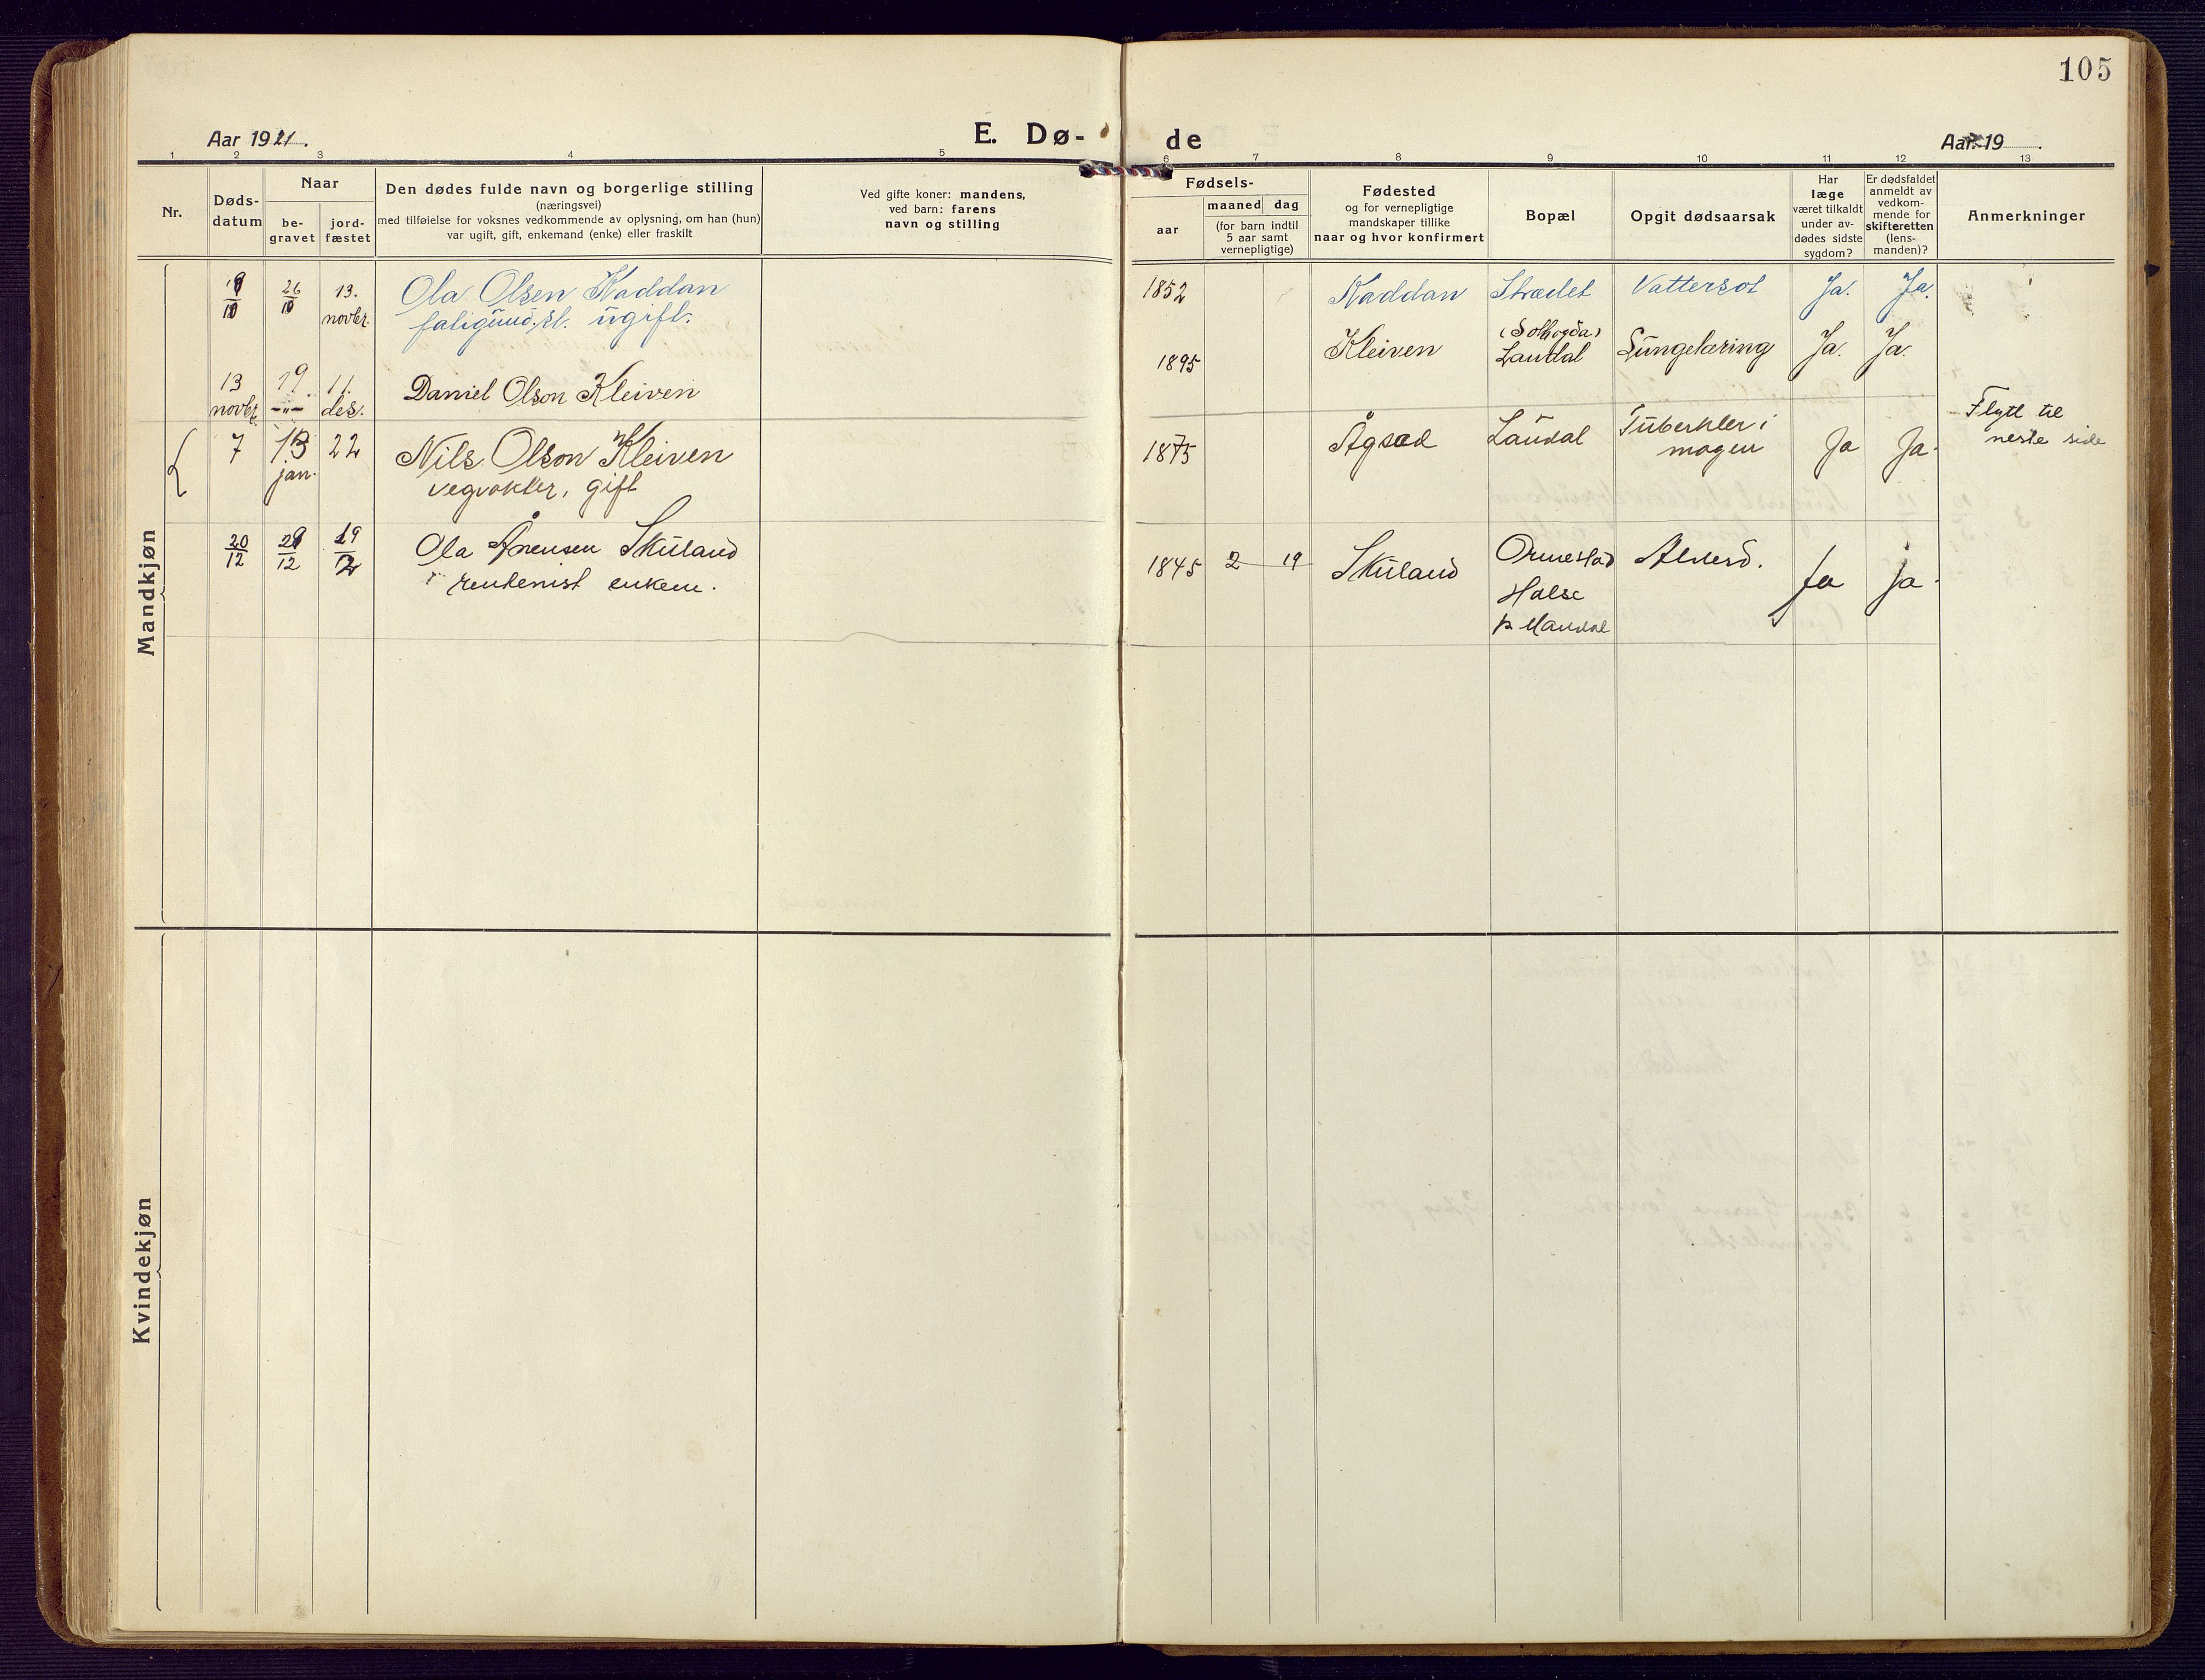 105
Aar 1921.
E. Dø-
de
Aar 19
1 2 3 4 5 6 7 8 9 10 11 12 13
Nr.
Døds-
datum
Naar
be-
gravet
jord-
fæstet
Den dødes fulde navn og borgerlige stilling
(næringsvei)
med tilføielse for voksnes vedkommende av oplysning, om han (hun)
var ugift, gift, enkemand (enke) eller fraskilt
Ved gifte koner: mandens,
ved barn: farens
navn og stilling
Fødsels-
aar
maaned dag
(for barn indtil
5 aar samt
vernepligtige)
Fødested
og for vernepligtige
mandskaper tillike
naar og hvor konfirmert
Bopæl
Opgit dødsaarsak
Har
læge
været tilkaldt
under av-
dødes sidste
sygdom?
Er dødsfaldet
anmeldt av
vedkom-
mende for
skifteretten
(lens-
manden)?
Anmerkninger
Mandkjøn
26
10
13.
novbr.
Ola Olsen Kaddan
ugift.
1852
Kaddan
Strædet
Vattersot
Ja.
Ja.
13
novbr.
19
-"-
11.
des.
Daniel Olson Kleiven
1895
Kleiven
(Solhogda)
Laudal
Lungetæring
Ja.
Ja.
7
13
jan.
22
Nils Olson Kleiven
vegvokter, gift
1875
Ågsæd
Laudal
Tuberkler i
magen
Ja
Ja.
Flytt til
neste side
20
12
12
19
2
Ola Ånensen Skuland
rentenist enkem.
1845 2 19
Skuland
Ormestad
Halse
p. Mandal
Alderd.
Ja
Ja.
Kvindekjøn